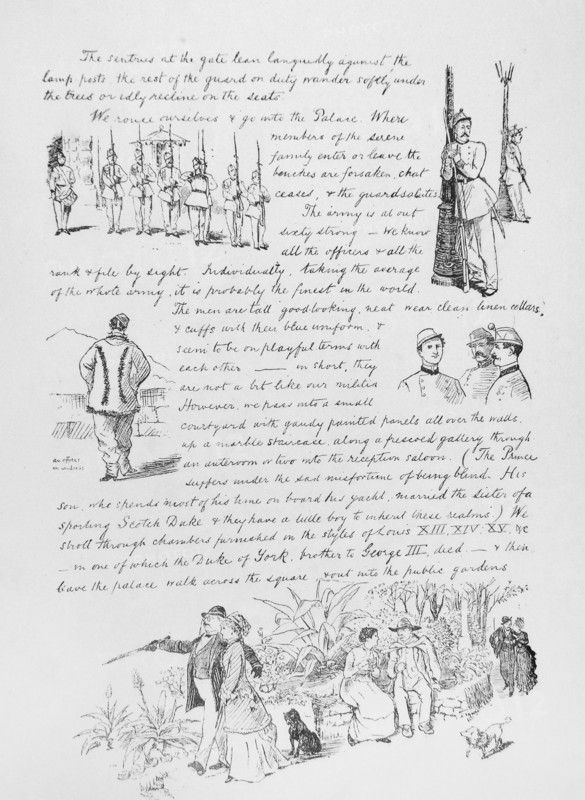 The sentries at the gate lean languidly against the
lamp posts the rest of the guard on duty wander softly under
the trees or idly recline on the seats.
We rouse ourselves & go into the Palace. Where
members of the serene
family enter or leave the
benches are forsaken, chat
ceases, & the guard salutes.
The army is about
sixty strong — We know
all the officers & all the
rank & file by sight. Individually, taking the average
of the whole army, it is probably the finest in the world.
The men are tall goodlooking, neat wear clean linen collars,
& cuffs with their blue uniform, &
seem to be on playful terms with
each other — in short, they
are not a bit like our militia
However, we pass into a small
courtyard with gaudy painted panels all over the walls,
up a marble staircase, along a frescoed gallery, through
an anteroom or two into the reception saloon. (The Prince
suffers under the sad misfortune of being blind. His
son, who spends most of his time on board his yacht, married the sister of a
sporting Scotch Duke & they have a little boy to inherit these realms.) We
stroll through chambers furnished in the styles of Louis XIII, XIV, XV, &c
— in one of which the Duke of York, brother to George III, died. — & then
leave the palace walk across the square, & out into the public gardens
an officer
in undress